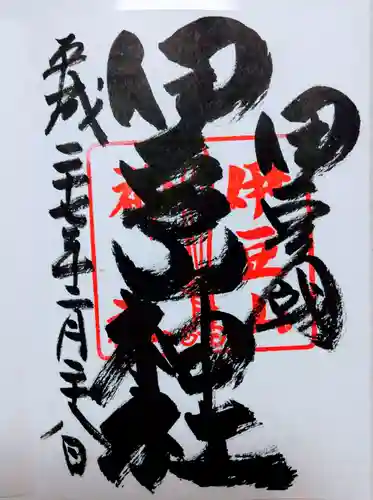 伊豆
伊豆山神社
平成二十七年二月二十八日
伊豆山
神社